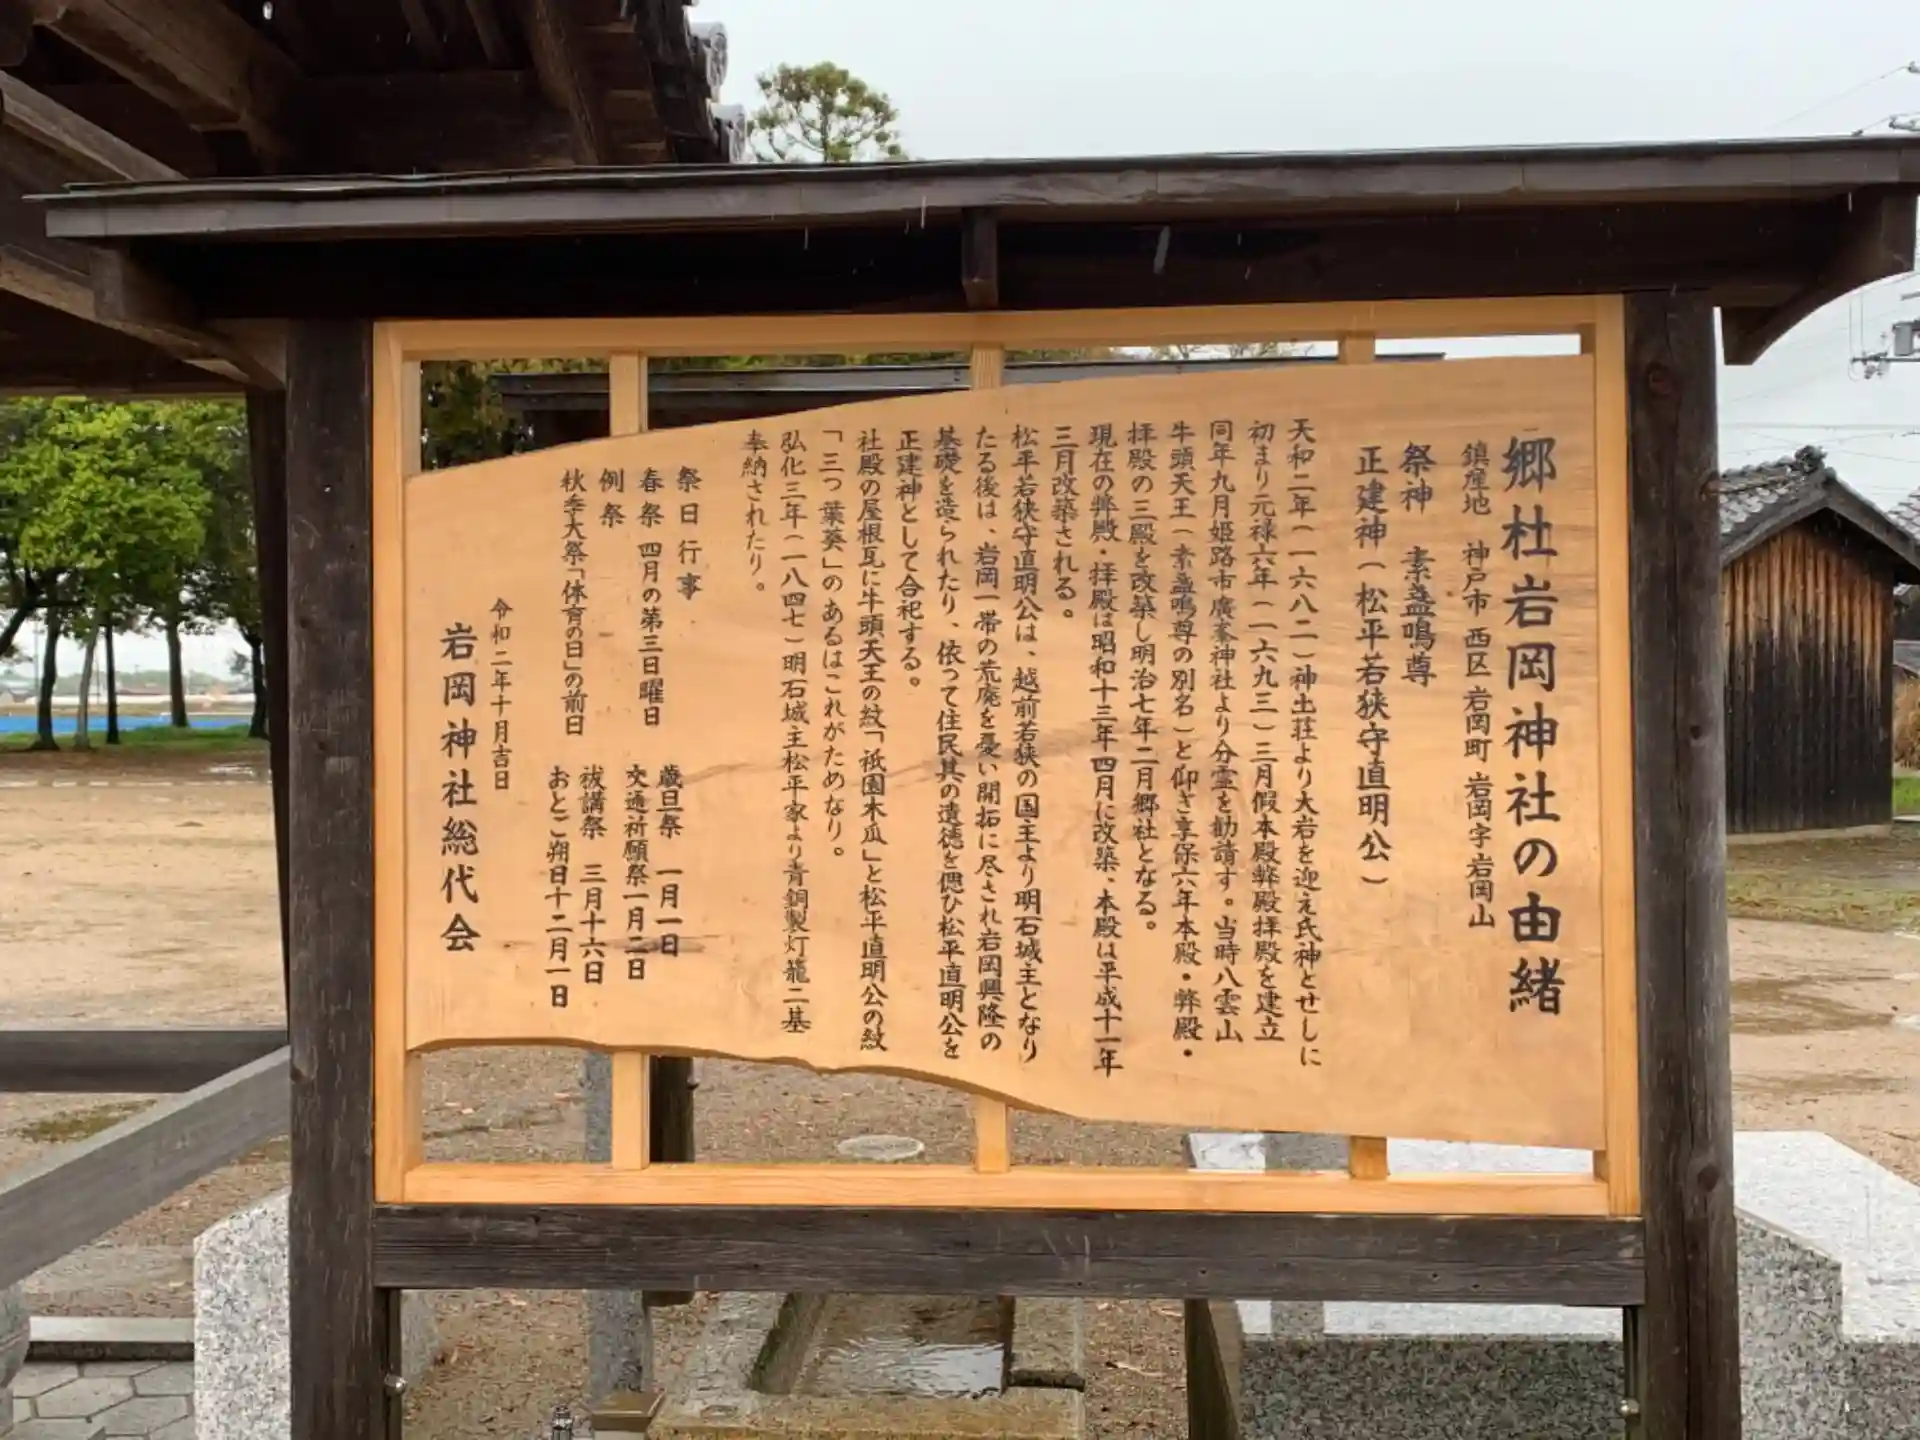 郷社岩岡神社の由緒
鎮座地 神戸市 西区 岩岡町 岩岡字岩岡山
祭神 素盞鳴尊
正建神(松平若狭守直明公)
天和二年(一六八二)神出荘より大岩を迎え氏神とせしに
初まり元禄六年(一六九三)三月假本殿弊殿拝殿を建立
同年九月姫路市廣峯神社より分霊を勧請す。当時八雲山
牛頭天王(素盞鳴尊の別名)と仰ぎ享保六年本殿・弊殿・
拝殿の三殿を改築し明治七年二月郷社となる。
現在の弊殿・拝殿は昭和十三年四月に改築、本殿は平成十一年
三月改築される。
松平若狭守直明公は、越前若狭の国主より明石城主となり
たる後は、岩岡一帯の荒廃を憂い開拓に尽され岩岡興隆の
基礎を造られたり、依って住民其の遺徳を偲び松平直明公を
正建神として合祀する。
社殿の屋根瓦に牛頭天王の紋「祇園木瓜」と松平直明公の紋
「三つ葉葵」のあるはこれがためなり。
弘化三年(一八四七)明石城主松平家より青銅製灯籠二基
奉納されたり。
祭日行事
春祭 四月の第三日曜日
例祭
秋季大祭「体育の日」の前日
歳旦祭 一月一日
交通祈願祭一月二日
祓講祭 三月十六日
おとご朔日十二月一日
令和二年十月吉日
岩岡神社総代会